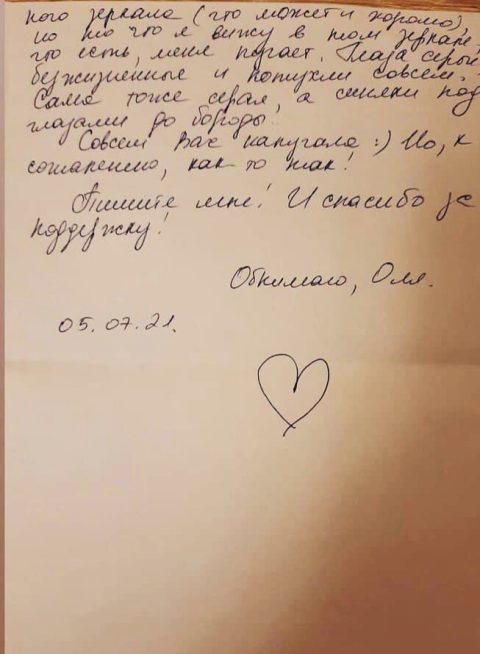 ного зеркала (что может и хорошо),
но то что я вижу в том зеркале,
что есть, меня пугает. Глаза серые
безжизненные и потухли совсем.
Сама тоже серая, а синяки под
глазами до бороды.
Совсем Вас напугала :) Но, к
сожалению, как-то так!
Пишите мне! И спасибо за
поддержку!
Обнимаю, Оля.
05.07.21.